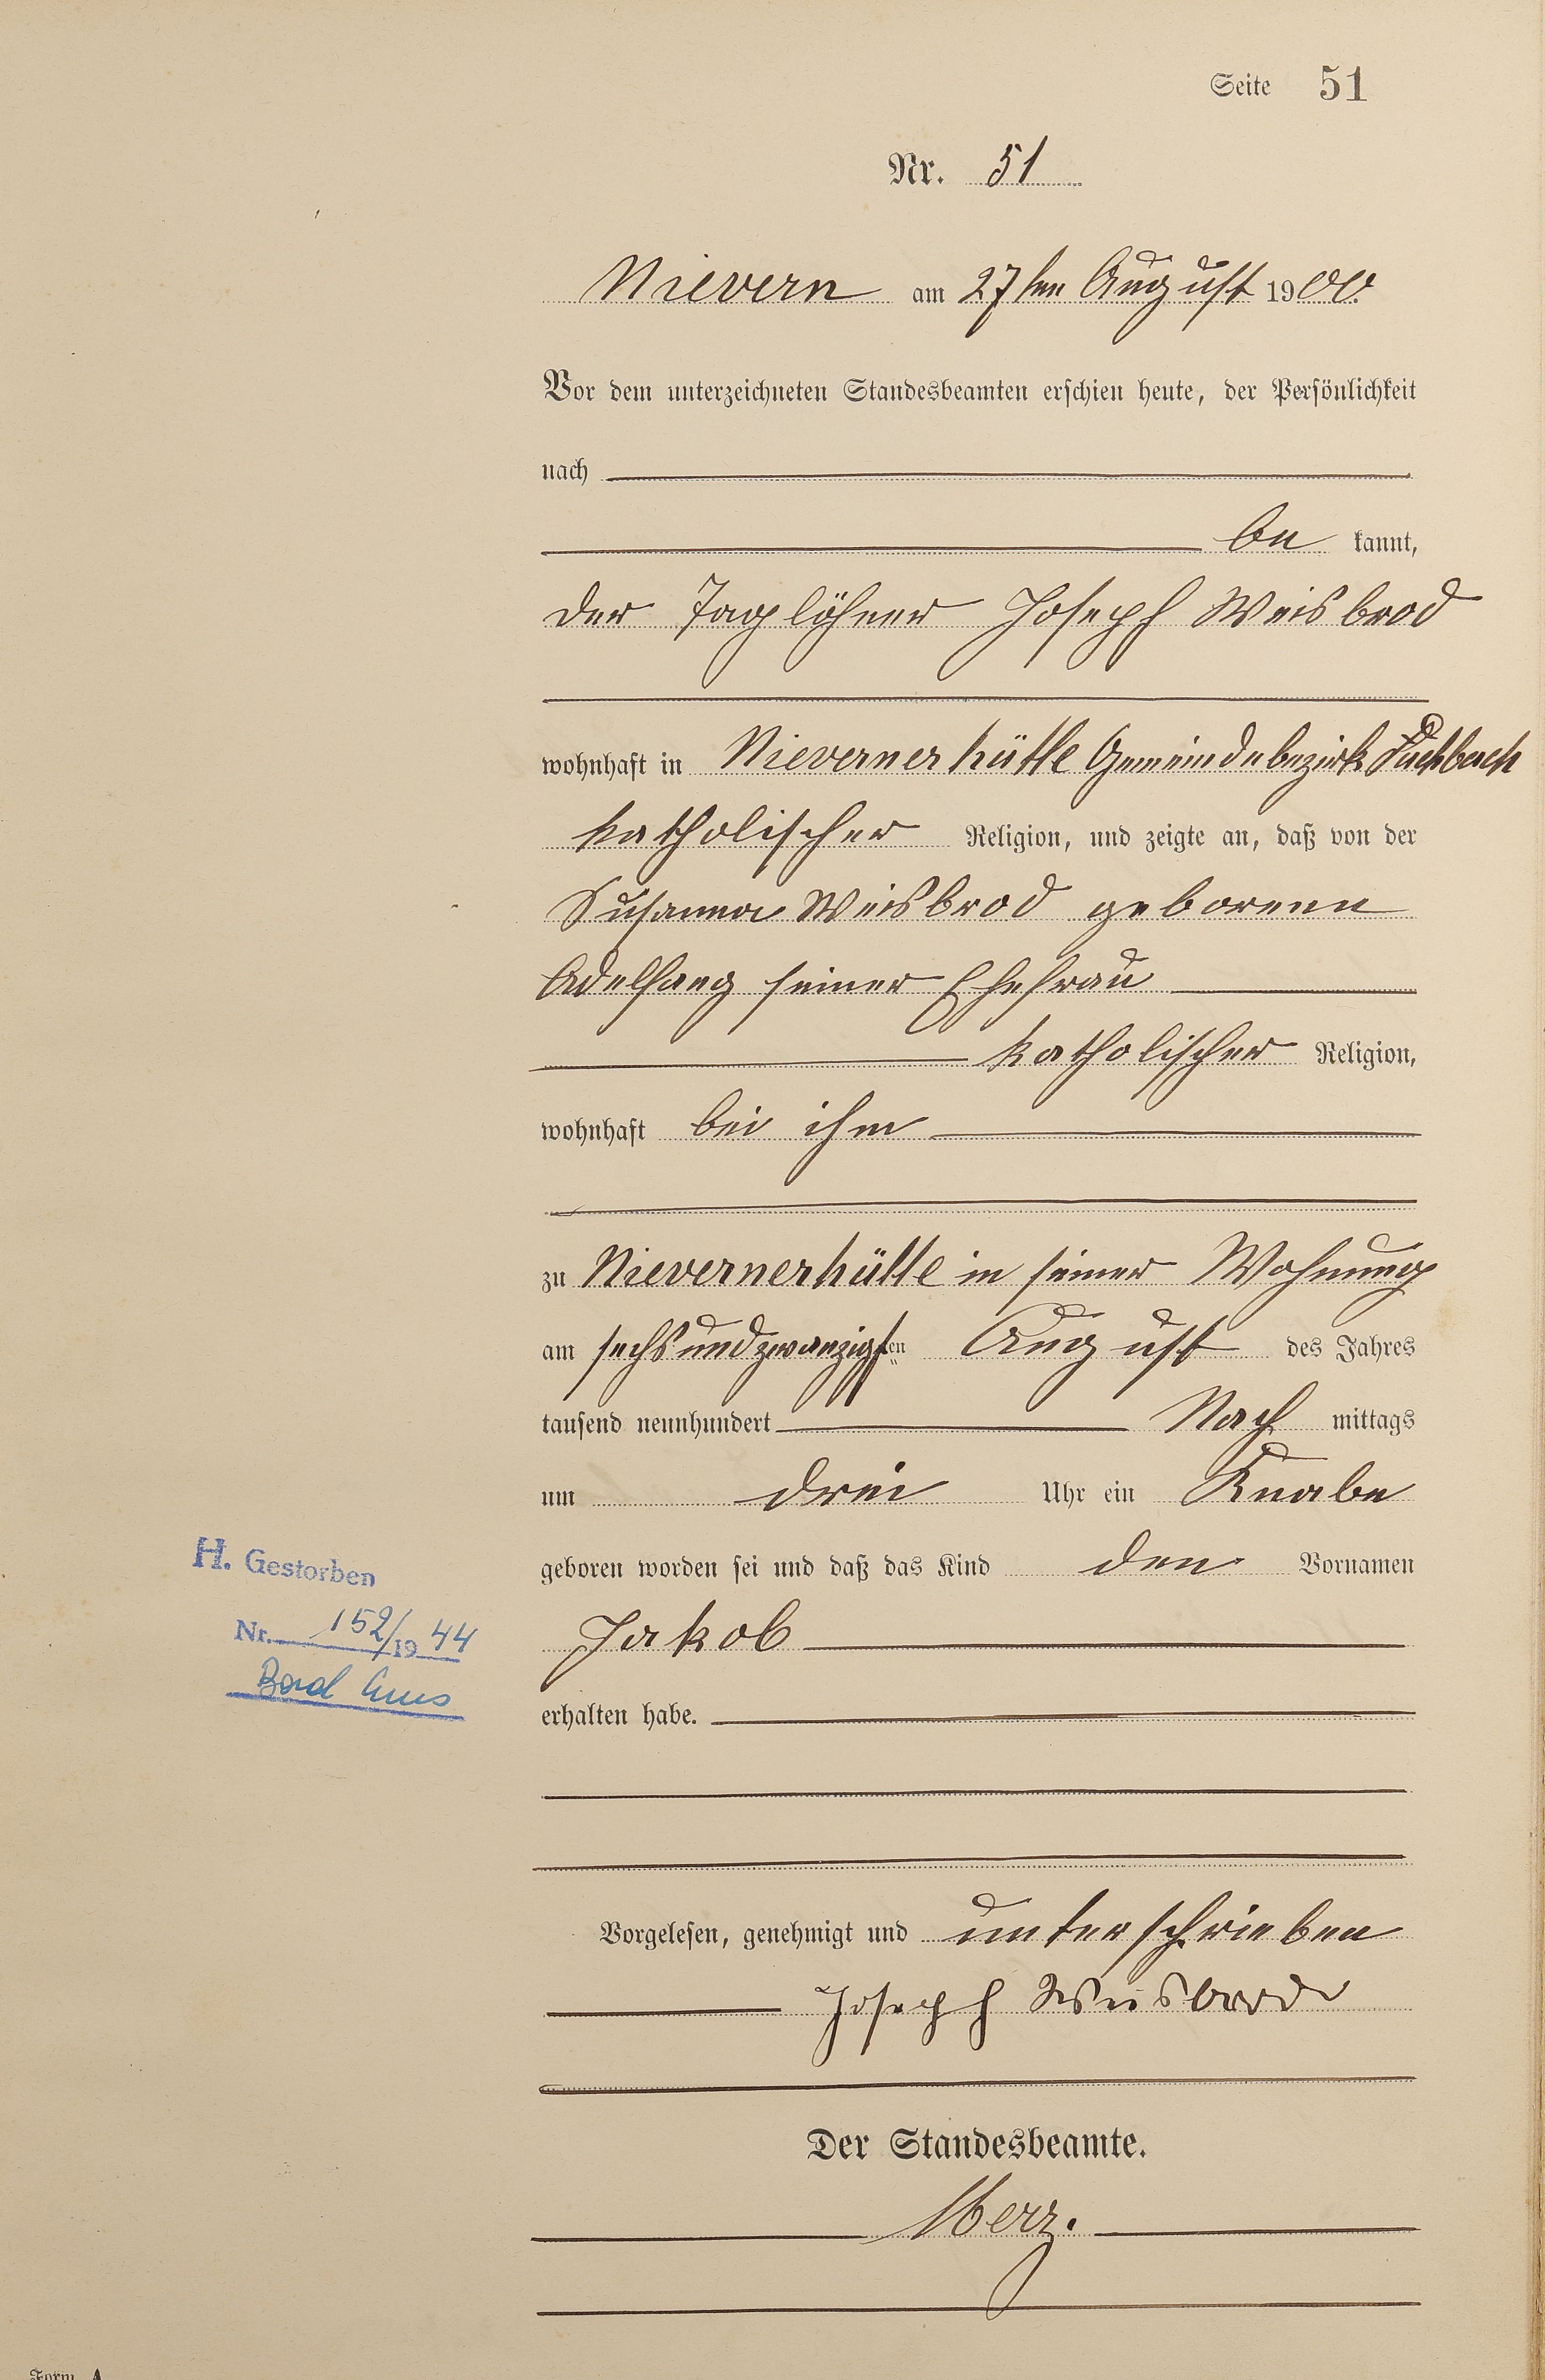 Seite 51
Nr. 51
Nievern am 27ten August 1900.
Vor dem unterzeichneten Standesbeamten erschien heute, der Persönlichkeit
nach
be kannt,
der Taglöhner Joseph Weisbrod
wohnhaft in Nievernerhütte Gemeindebezirk Fachbach
katholischer Religion, und zeigte an, daß von der
Susanna Weisbrod geborenen
seiner Ehefrau
katholischer Religion,
wohnhaft bei ihm
zu Nievernerhütte in seiner Wohnung
am sechsundzwanzigsten August des Jahres
tausend neunhundert Nach mittags
um drei Uhr ein Knabe
geboren worden sei und daß das Kind den Vornamen
H. Gestorben
Nr. 152/19 44
Bad Ems
Jakob
erhalten habe.
Vorgelesen, genehmigt und unterschrieben
Joseph Weisbrod
Der Standesbeamte.
Merz.
Form. A